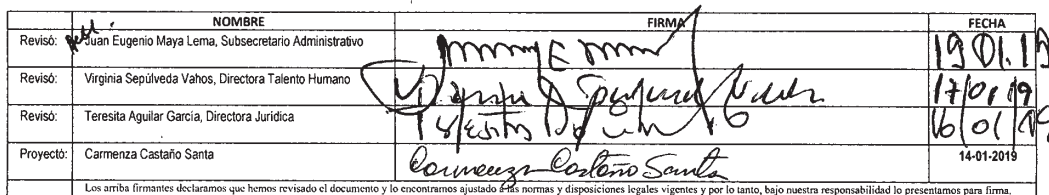 NOMBRE FIRMA FECHA
Revisó: Juan Eugenio Maya Lema, Subsecretario Administrativo 19 01.19
Revisó: Virginia Sepúlveda Vahos, Directora Talento Humano 17/01/19
Revisó: Teresita Aguilar García, Directora Jurídica 16/01/19
Proyectó: Carmenza Castaño Santa Carmenza Castaño Santa 14-01-2019
Los arriba firmantes declaramos que hemos revisado el documento y lo encontramos ajustado a las normas y disposiciones legales vigentes y por lo tanto, bajo nuestra responsabilidad lo presentamos para firma.